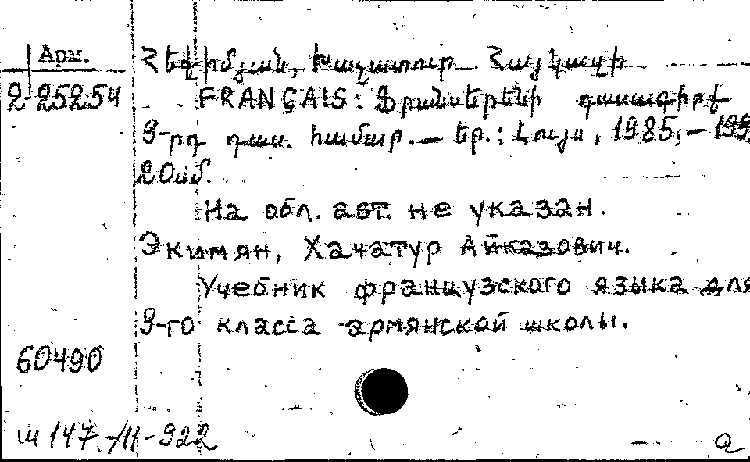 Арм.
Հեքիմյան, Խաչատուր Հայկազի
2 25254
FRANÇAIS: Ֆրանսերենի դասագիրք
9-րդ դաս. համար.— Եր.: Լույս, 1985,—
20սմ.
На обл. авт. не указан.
Экимян, Хачатур Айказович.
Учебник французского языка для
9-го класса армянской школы.
60490
147-/11-922
а